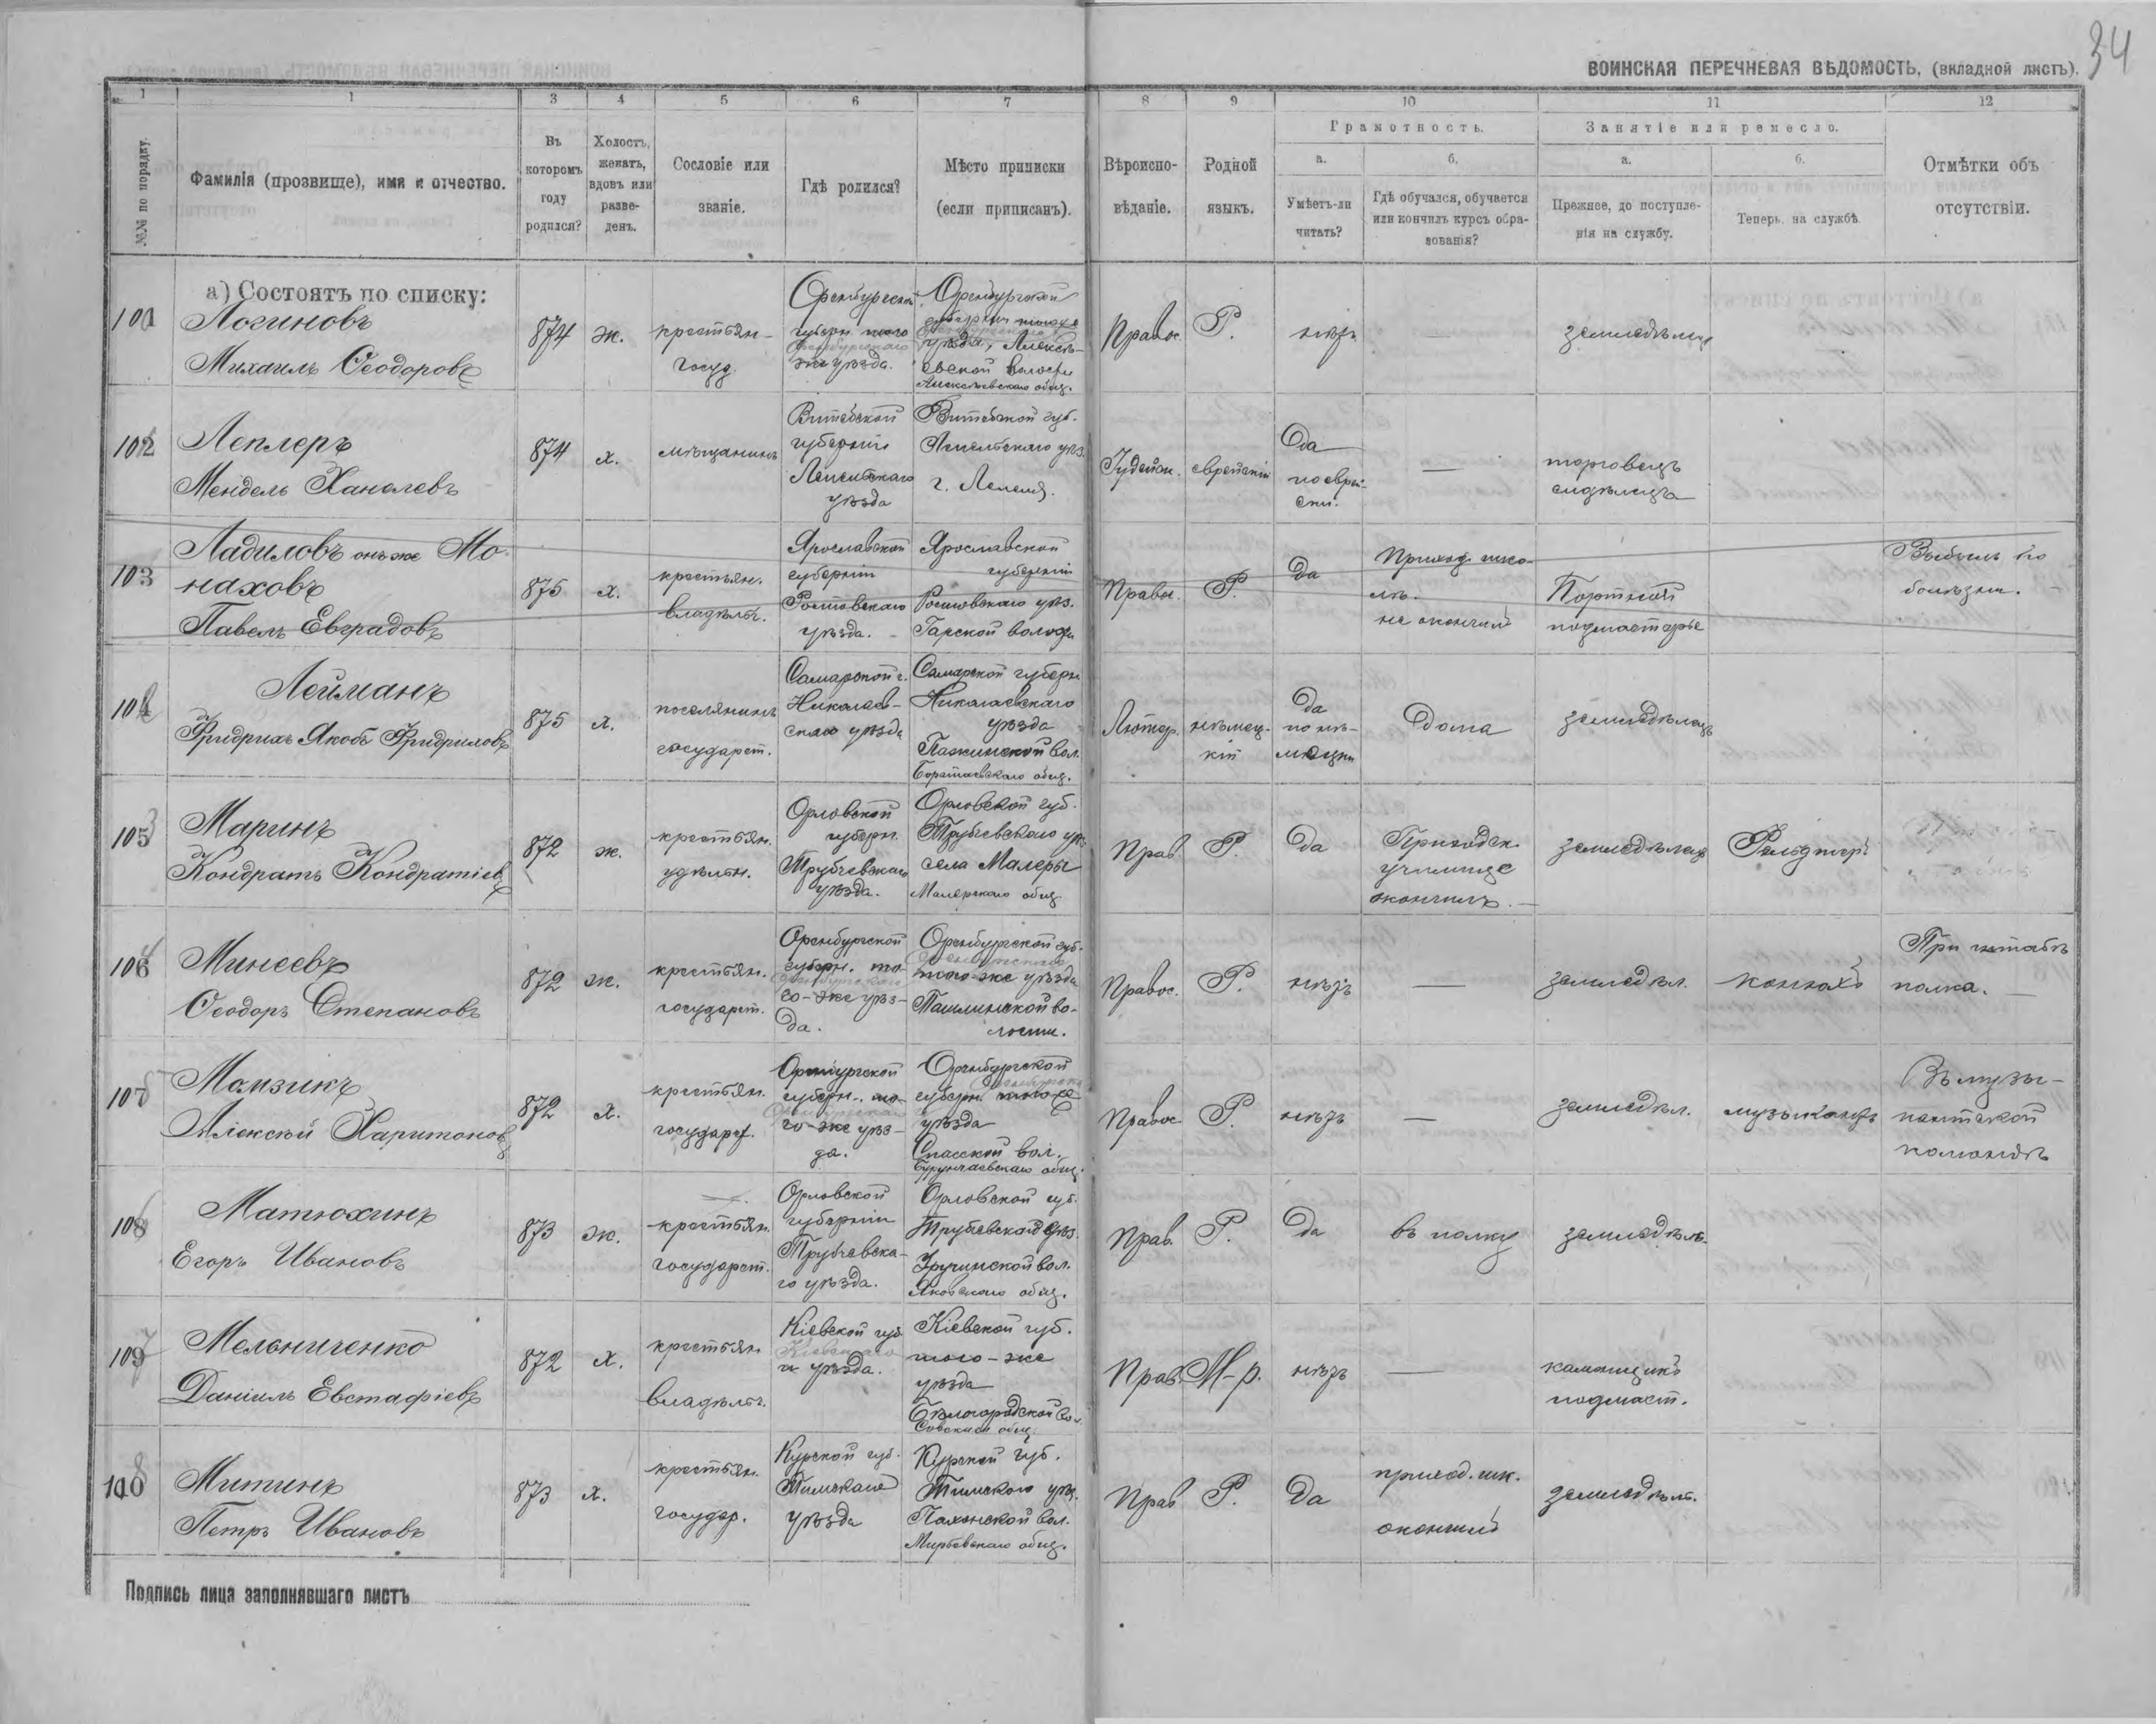 34
ВОИНСКАЯ ПЕРЕЧНЕВАЯ ВѢДОМОСТЬ, (вкладной листъ).
1 1 3 4 5 6 7 8 9 10 11 12
№№ по порядку.
Фамилія (прозвище), имя и отчество.
Въ которомъ году родился?
Холостъ, женатъ, вдовъ или разве-денъ.
Сословіе или званіе.
Гдѣ родился?
Мѣсто приписки (если приписанъ).
Вѣроиспо-вѣданіе.
Родной языкъ.
Грамотность.
а.
Умѣетъ-ли читать?
б.
Гдѣ обучался, обучается или кончилъ курсъ обра-зованія?
Занятіе или ремесло.
а.
Прежнее, до поступле-нія на службу.
б.
Теперь, на службѣ.
Отмѣтки объ отсутствіи.
а) Состоятъ по списку:
Логиновъ
Михаилъ Ѳеодоровъ
874
ж.
крестьян-
госуд.
Оренбургской
губерн
уѣзда.
Оренбургской
уѣзда, Алексѣ-
евской волости
Алексѣевскаго общ.
Правос.
Р.
нѣтъ
—
земледѣлец
102
Леплеръ
Мендель Ханелевъ
874
х.
мѣщанинъ
Витебской
губерніи
Лепельскаго
уѣзда
Витебской губ.
Лепельскаго уѣз.
г. Лепеля.
Іудейск.
еврейскій
Да
по еврей-
ски.
—
торговецъ
сидѣлецъ
103
Ладиловъ онъ же Мо-
наховъ
Павелъ Евградовъ
875
х.
крестьян.
владѣльч.
Ярославской
губерніи
Ростовскаго
уѣзда.
Ярославской
губерніи
Ростовскаго уѣз.
Гарской волости
Правос.
Р.
Да
Приход. шко-
лѣ.
не окончилъ
Портной
подмастерье
Выбылъ по
болѣзни.
104
Лейманъ
Фридрихъ Якобъ Фридриховъ
875
х.
поселянинъ
государст.
Самарской г.
Николаев-
скаго уѣзда
Самарской губерн
Николаевскаго
уѣзда
вол.
общ.
Лютер.
нѣмец-
кій
Да
по нѣ-
мецки
Дома
земледѣлецъ
105
Маринъ
Кондратъ Кондратіевъ
872
ж.
крестьян.
удѣльн.
Орловской
губерн.
Трубчевскаго
уѣзда.
Орловской губ.
Трубчевскаго уѣз
села Малеры
Малерскаго общ.
Прав.
Р.
Да
Приходск.
училище
окончилъ.
земледѣлецъ
Фельдшеръ
106
Минеевъ
Ѳеодоръ Степановъ
872
ж.
крестьян.
государст.
Оренбургской
губерн. то-
го-же уѣз-
да.
Оренбургской губ.
того-же уѣзда
Ташлинской во-
лости.
Правос.
Р.
нѣтъ
—
земледѣл.
конюхъ
При штабѣ
полка.
107
Мамзинъ
Алексѣй Харитоновъ
872
х.
крестьян.
государст.
Оренбургской
губерн. то-
го-же уѣз-
да.
Оренбургской
губерн.
уѣзда
Спасской вол.
общ.
Правос.
Р.
нѣтъ
—
земледѣл.
музыкантъ
Въ музы-
кантской
командѣ
108
Матюхинъ
Егоръ Ивановъ
873
ж.
крестьян.
государст.
Орловской
губерніи
Трубчевска-
го уѣзда.
Орловской губ.
Трубчевскаго уѣз.
вол.
общ.
Прав.
Р.
Да
въ полку
земледѣль.
109
Мельниченко
Даніилъ Евстафіевъ
872
х.
крестьян
владѣльч.
Кіевской губ.
и уѣзда.
Кіевской губ.
того-же
уѣзда
Бѣлогородской во
общ.
Прав.
М-р.
нѣтъ
—
каменщикъ
подмаст.
Митинъ
Петръ Ивановъ
873
х.
крестьян.
государ.
Курской губ.
Тимскаго
уѣзда
Курской губ.
Тимскаго уѣз.
вол.
общ.
Прав
Р.
Да
приход. шк.
окончилъ
земледѣльч.
Подпись лица заполнявшаго листъ